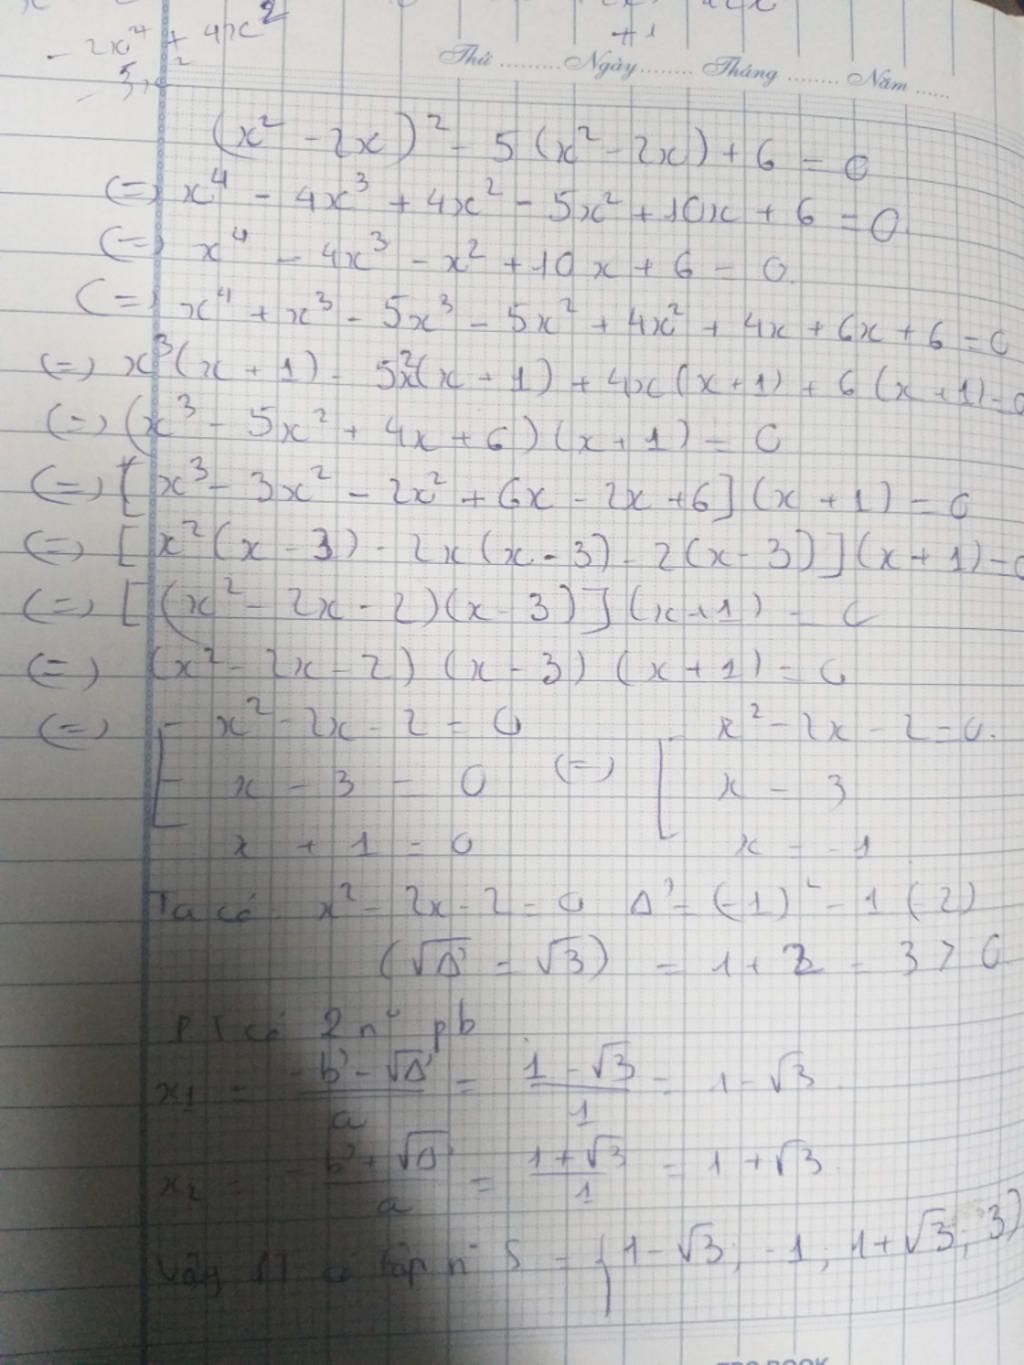 - 2x⁴ + 4x²
+ 1
Thứ ......... Ngày ........ Tháng ........ Năm ......
(x² - 2x)² - 5(x² - 2x) + 6 = 0
(=) x⁴ - 4x³ + 4x² - 5x² + 10x + 6 = 0
(=) x⁴ - 4x³ - x² + 10x + 6 = 0
(=) x⁴ + x³ - 5x³ - 5x² + 4x² + 4x + 6x + 6 = 0
(=) x³(x + 1) - 5x²(x + 1) + 4x(x + 1) + 6(x + 1) = 0
(=) (x³ - 5x² + 4x + 6)(x + 1) = 0
(=) [x³ - 3x² - 2x² + 6x - 2x + 6](x + 1) = 0
(=) [x²(x - 3) - 2x(x - 3) - 2(x - 3)](x + 1) = 0
(=) [(x² - 2x - 2)(x - 3)](x + 1) = 0
(=) (x² - 2x - 2)(x - 3)(x + 1) = 0
(=) [ x² - 2x - 2 = 0 x² - 2x - 2 = 0.
x - 3 = 0 (=) [ x = 3
x + 1 = 0 x = -1
Ta có x² - 2x - 2 = 0 Δ' = (-1)² - 1(-2)
(√Δ' = √3) = 1 + 2 = 3 > 0
PT có 2 n⁰ pb
x₁ = -b' - √Δ' / a = 1 - √3 / 1 = 1 - √3
x₂ = -b' + √Δ' / a = 1 + √3 / 1 = 1 + √3
Vậy PT có tập n⁰ S = {1 - √3; -1; 1 + √3; 3}